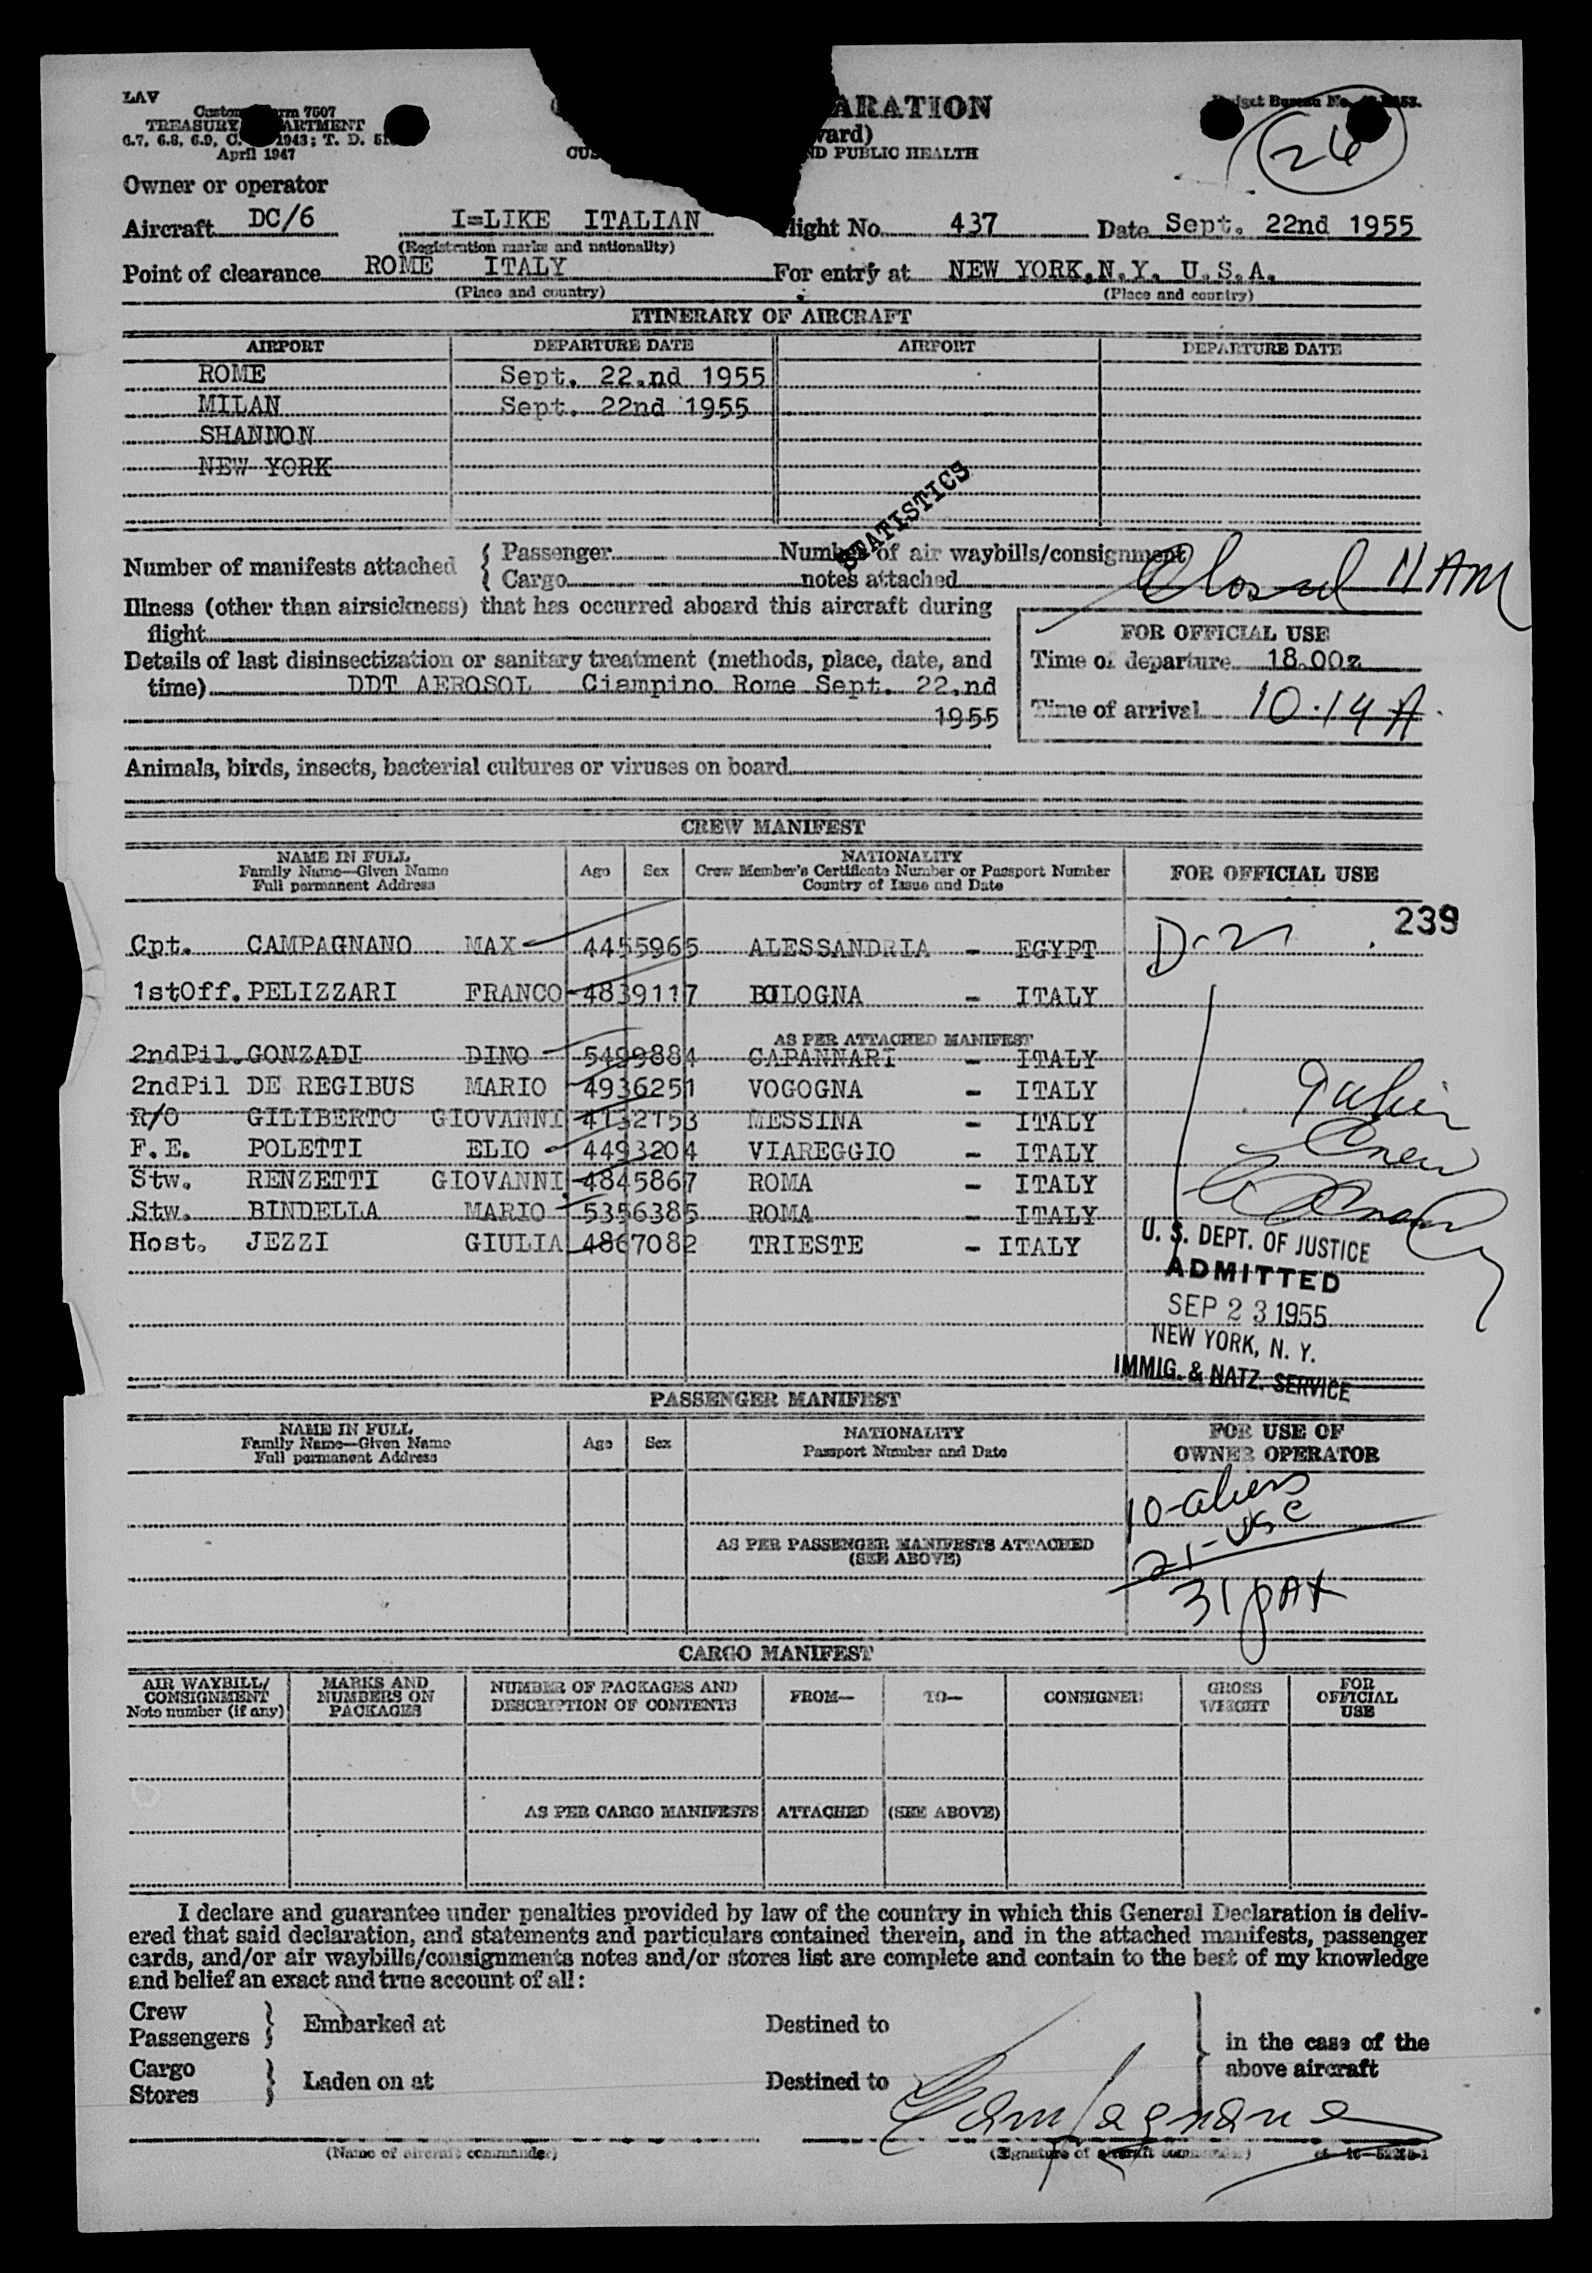 LAV
Customs Form 7507
TREASURY DEPARTMENT
6.7, 6.8, 6.9, C. 1943; T. D.
April 1947
ARATION
ward)
CUS ND PUBLIC HEALTH
Budget Bureau No.
26
Owner or operator
Aircraft DC/6 I=LIKE ITALIAN light No. 437 Date Sept. 22nd 1955
(Registration marks and nationality)
Point of clearance ROME ITALY For entry at NEW YORK,N.Y. U.S.A.
(Place and country) (Place and country)
ITINERARY OF AIRCRAFT
AIRPORT DEPARTURE DATE AIRPORT DEPARTURE DATE
ROME Sept. 22.nd 1955
MILAN Sept. 22nd 1955
SHANNON
NEW YORK
STATISTICS
Number of manifests attached { Passenger Number of air waybills/consignment
Cargo notes attached
Closed 11 AM
Illness (other than airsickness) that has occurred aboard this aircraft during
flight
FOR OFFICIAL USE
Details of last disinsectization or sanitary treatment (methods, place, date, and
time) DDT AEROSOL Ciampino Rome Sept. 22.nd
1955
Time of departure 18.00z
Time of arrival 10.14 A
Animals, birds, insects, bacterial cultures or viruses on board
CREW MANIFEST
NAME IN FULL
Family Name—Given Name
Full permanent Address
Age Sex
NATIONALITY
Crew Member's Certificate Number or Passport Number
Country of Issue and Date
FOR OFFICIAL USE
239
Cpt. CAMPAGNANO MAX 4455965 ALESSANDRIA - EGYPT D-21
1stOff. PELIZZARI FRANCO 4839117 BOLOGNA - ITALY
AS PER ATTACHED MANIFEST
2ndPil. GONZADI DINO 5499884 CAPANNARI - ITALY
2ndPil DE REGIBUS MARIO 4936251 VOGOGNA - ITALY
R/O GILIBERTO GIOVANNI 4132153 MESSINA - ITALY
F.E. POLETTI ELIO 4493204 VIAREGGIO - ITALY
Stw. RENZETTI GIOVANNI 4845867 ROMA - ITALY
Stw. BINDELLA MARIO 5356385 ROMA - ITALY
Host. JEZZI GIULIA 4867082 TRIESTE - ITALY
Crew
U. S. DEPT. OF JUSTICE
ADMITTED
SEP 23 1955
NEW YORK, N. Y.
IMMIG. & NATZ. SERVICE
PASSENGER MANIFEST
NAME IN FULL
Family Name—Given Name
Full permanent Address
Age Sex
NATIONALITY
Passport Number and Date
FOR USE OF
OWNER OPERATOR
10-aliens
21-USC
31 PAX
AS PER PASSENGER MANIFESTS ATTACHED
(SEE ABOVE)
CARGO MANIFEST
AIR WAYBILL/
CONSIGNMENT
Note number (if any)
MARKS AND
NUMBERS ON
PACKAGES
NUMBER OF PACKAGES AND
DESCRIPTION OF CONTENTS
FROM— TO— CONSIGNEE
GROSS
WEIGHT
FOR
OFFICIAL
USE
AS PER CARGO MANIFESTS ATTACHED (SEE ABOVE)
I declare and guarantee under penalties provided by law of the country in which this General Declaration is deliv-
ered that said declaration, and statements and particulars contained therein, and in the attached manifests, passenger
cards, and/or air waybills/consignments notes and/or stores list are complete and contain to the best of my knowledge
and belief an exact and true account of all:
Crew
Passengers } Embarked at Destined to
Cargo
Stores } Laden on at Destined to
in the case of the
above aircraft
Campagnano
(Name of aircraft commander) (Signature of aircraft commander)